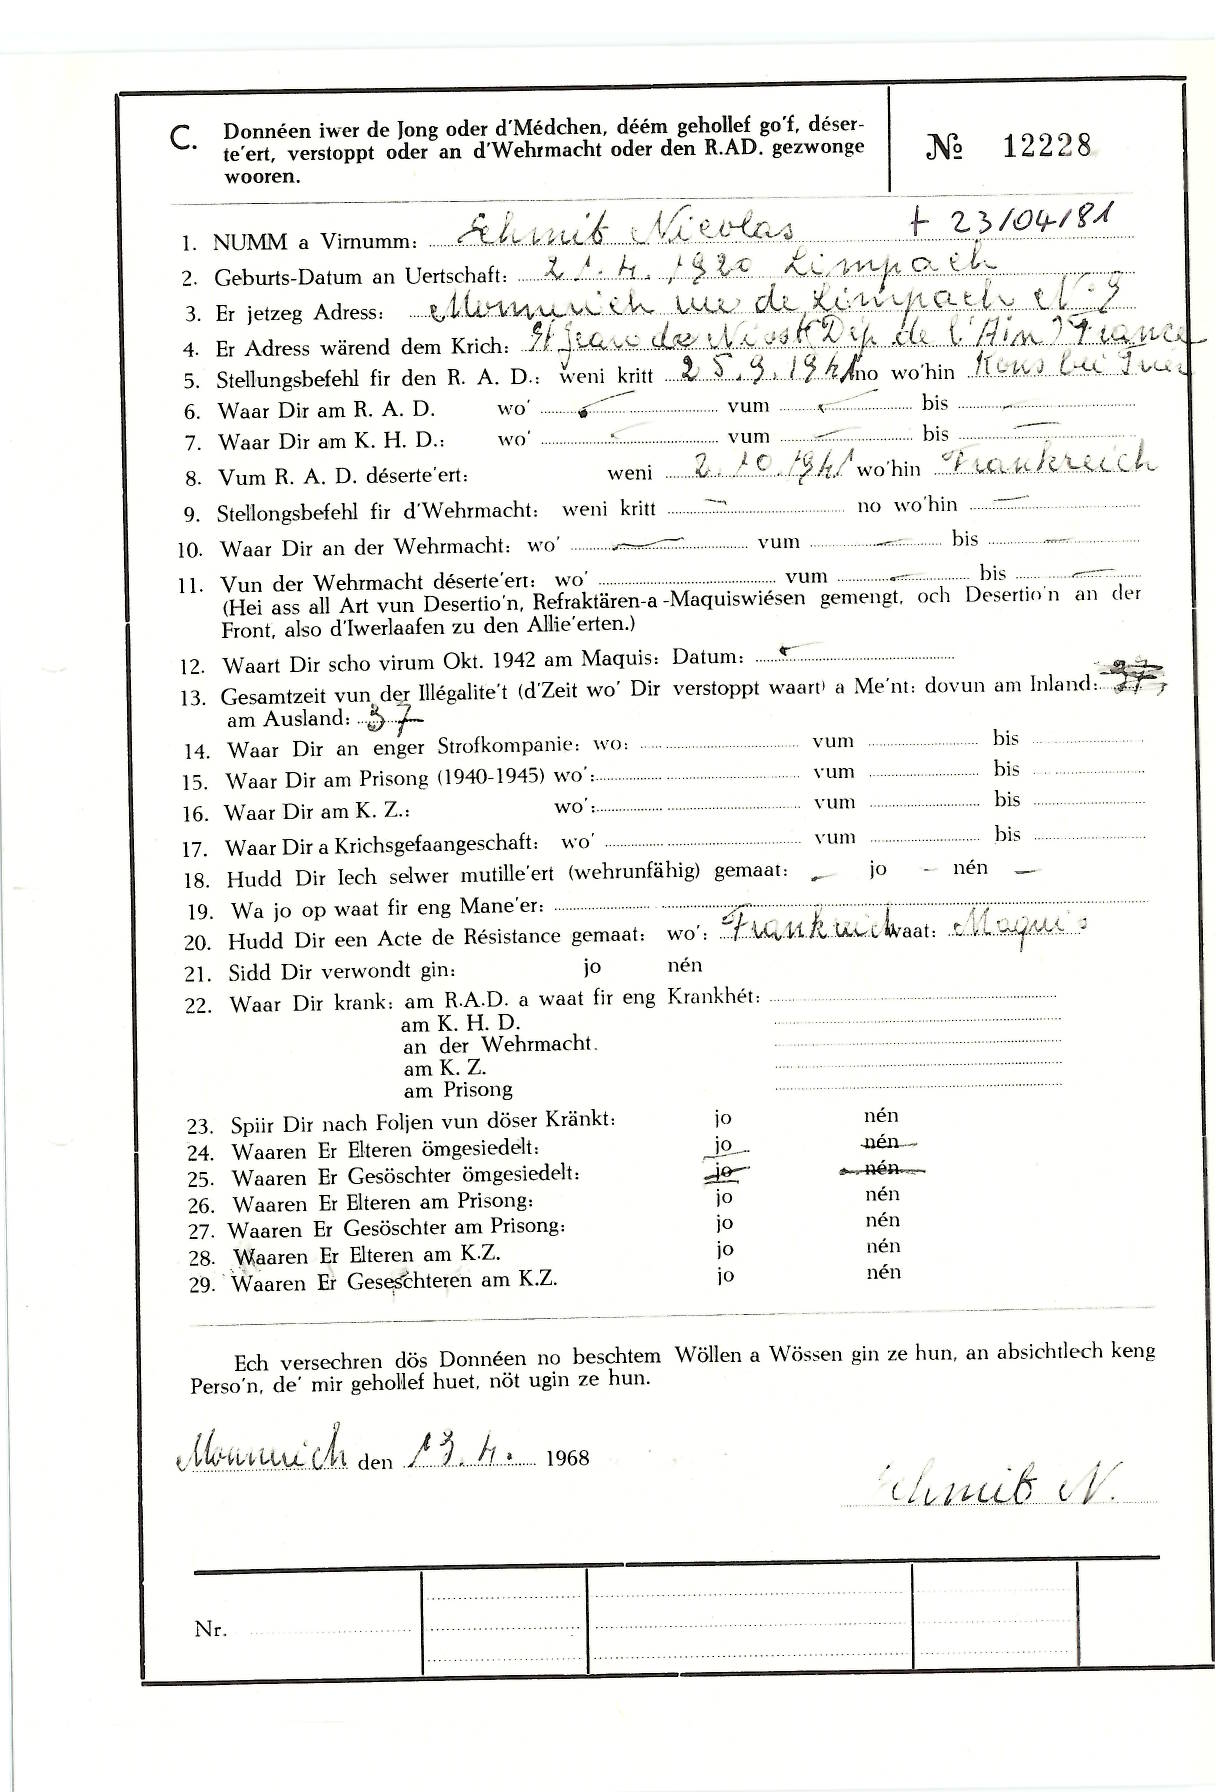 C. Donnéen iwer de Jong oder d'Médchen, déém gehollef go'f, déser-
te'ert, verstoppt oder an d'Wehrmacht oder den R.AD. gezwonge
wooren.
№ 12228
1. NUMM a Virnumm: Schmit Nicolas † 23/04/81
2. Geburts-Datum an Uertschaft: 21.4.1920 Limpach
3. Er jetzeg Adress: Monnerich rue de Limpach N° 9
4. Er Adress wärend dem Krich: St Jean de Niost (Dép de l'Ain) France
5. Stellungsbefehl fir den R. A. D.: weni kritt 25.9.1941 no wo'hin Kons bei Trier
6. Waar Dir am R. A. D. wo' - vum - bis -
7. Waar Dir am K. H. D.: wo' - vum - bis -
8. Vum R. A. D. déserte'ert: weni 2.10.1941 wo'hin Frankreich
9. Stellongsbefehl fir d'Wehrmacht: weni kritt - no wo'hin -
10. Waar Dir an der Wehrmacht: wo' - vum - bis -
11. Vun der Wehrmacht déserte'ert: wo' vum - bis -
(Hei ass all Art vun Desertio'n, Refraktären-a-Maquiswiésen gemengt, och Desertio'n an der
Front, also d'Iwerlaafen zu den Allie'erten.)
12. Waart Dir scho virum Okt. 1942 am Maquis: Datum: -
13. Gesamtzeit vun der Illégalite't (d'Zeit wo' Dir verstoppt waart) a Me'nt: dovun am Inland: 37,
am Ausland: 37
14. Waar Dir an enger Strofkompanie: wo: vum bis
15. Waar Dir am Prisong (1940-1945) wo': vum bis
16. Waar Dir am K. Z.: wo': vum bis
17. Waar Dir a Krichsgefaangeschaft: wo' vum bis
18. Hudd Dir Iech selwer mutille'ert (wehrunfähig) gemaat: - jo - nén -
19. Wa jo op waat fir eng Mane'er:
20. Hudd Dir een Acte de Résistance gemaat: wo': Frankreich waat: Maquis
21. Sidd Dir verwondt gin: jo nén
22. Waar Dir krank: am R.A.D. a waat fir eng Krankhét:
am K. H. D.
an der Wehrmacht.
am K. Z.
am Prisong
23. Spiir Dir nach Foljen vun döser Kränkt: jo nén
24. Waaren Er Elteren ömgesiedelt: jo nén
25. Waaren Er Gesöschter ömgesiedelt: jo nén
26. Waaren Er Elteren am Prisong: jo nén
27. Waaren Er Gesöschter am Prisong: jo nén
28. Waaren Er Elteren am K.Z. jo nén
29. Waaren Er Geseschteren am K.Z. jo nén
Ech versechren dös Donnéen no beschtem Wöllen a Wössen gin ze hun, an absichtlech keng
Perso'n, de' mir gehollef huet, nöt ugin ze hun.
Monnerich den 19.4. 1968
Schmit N.
Nr.